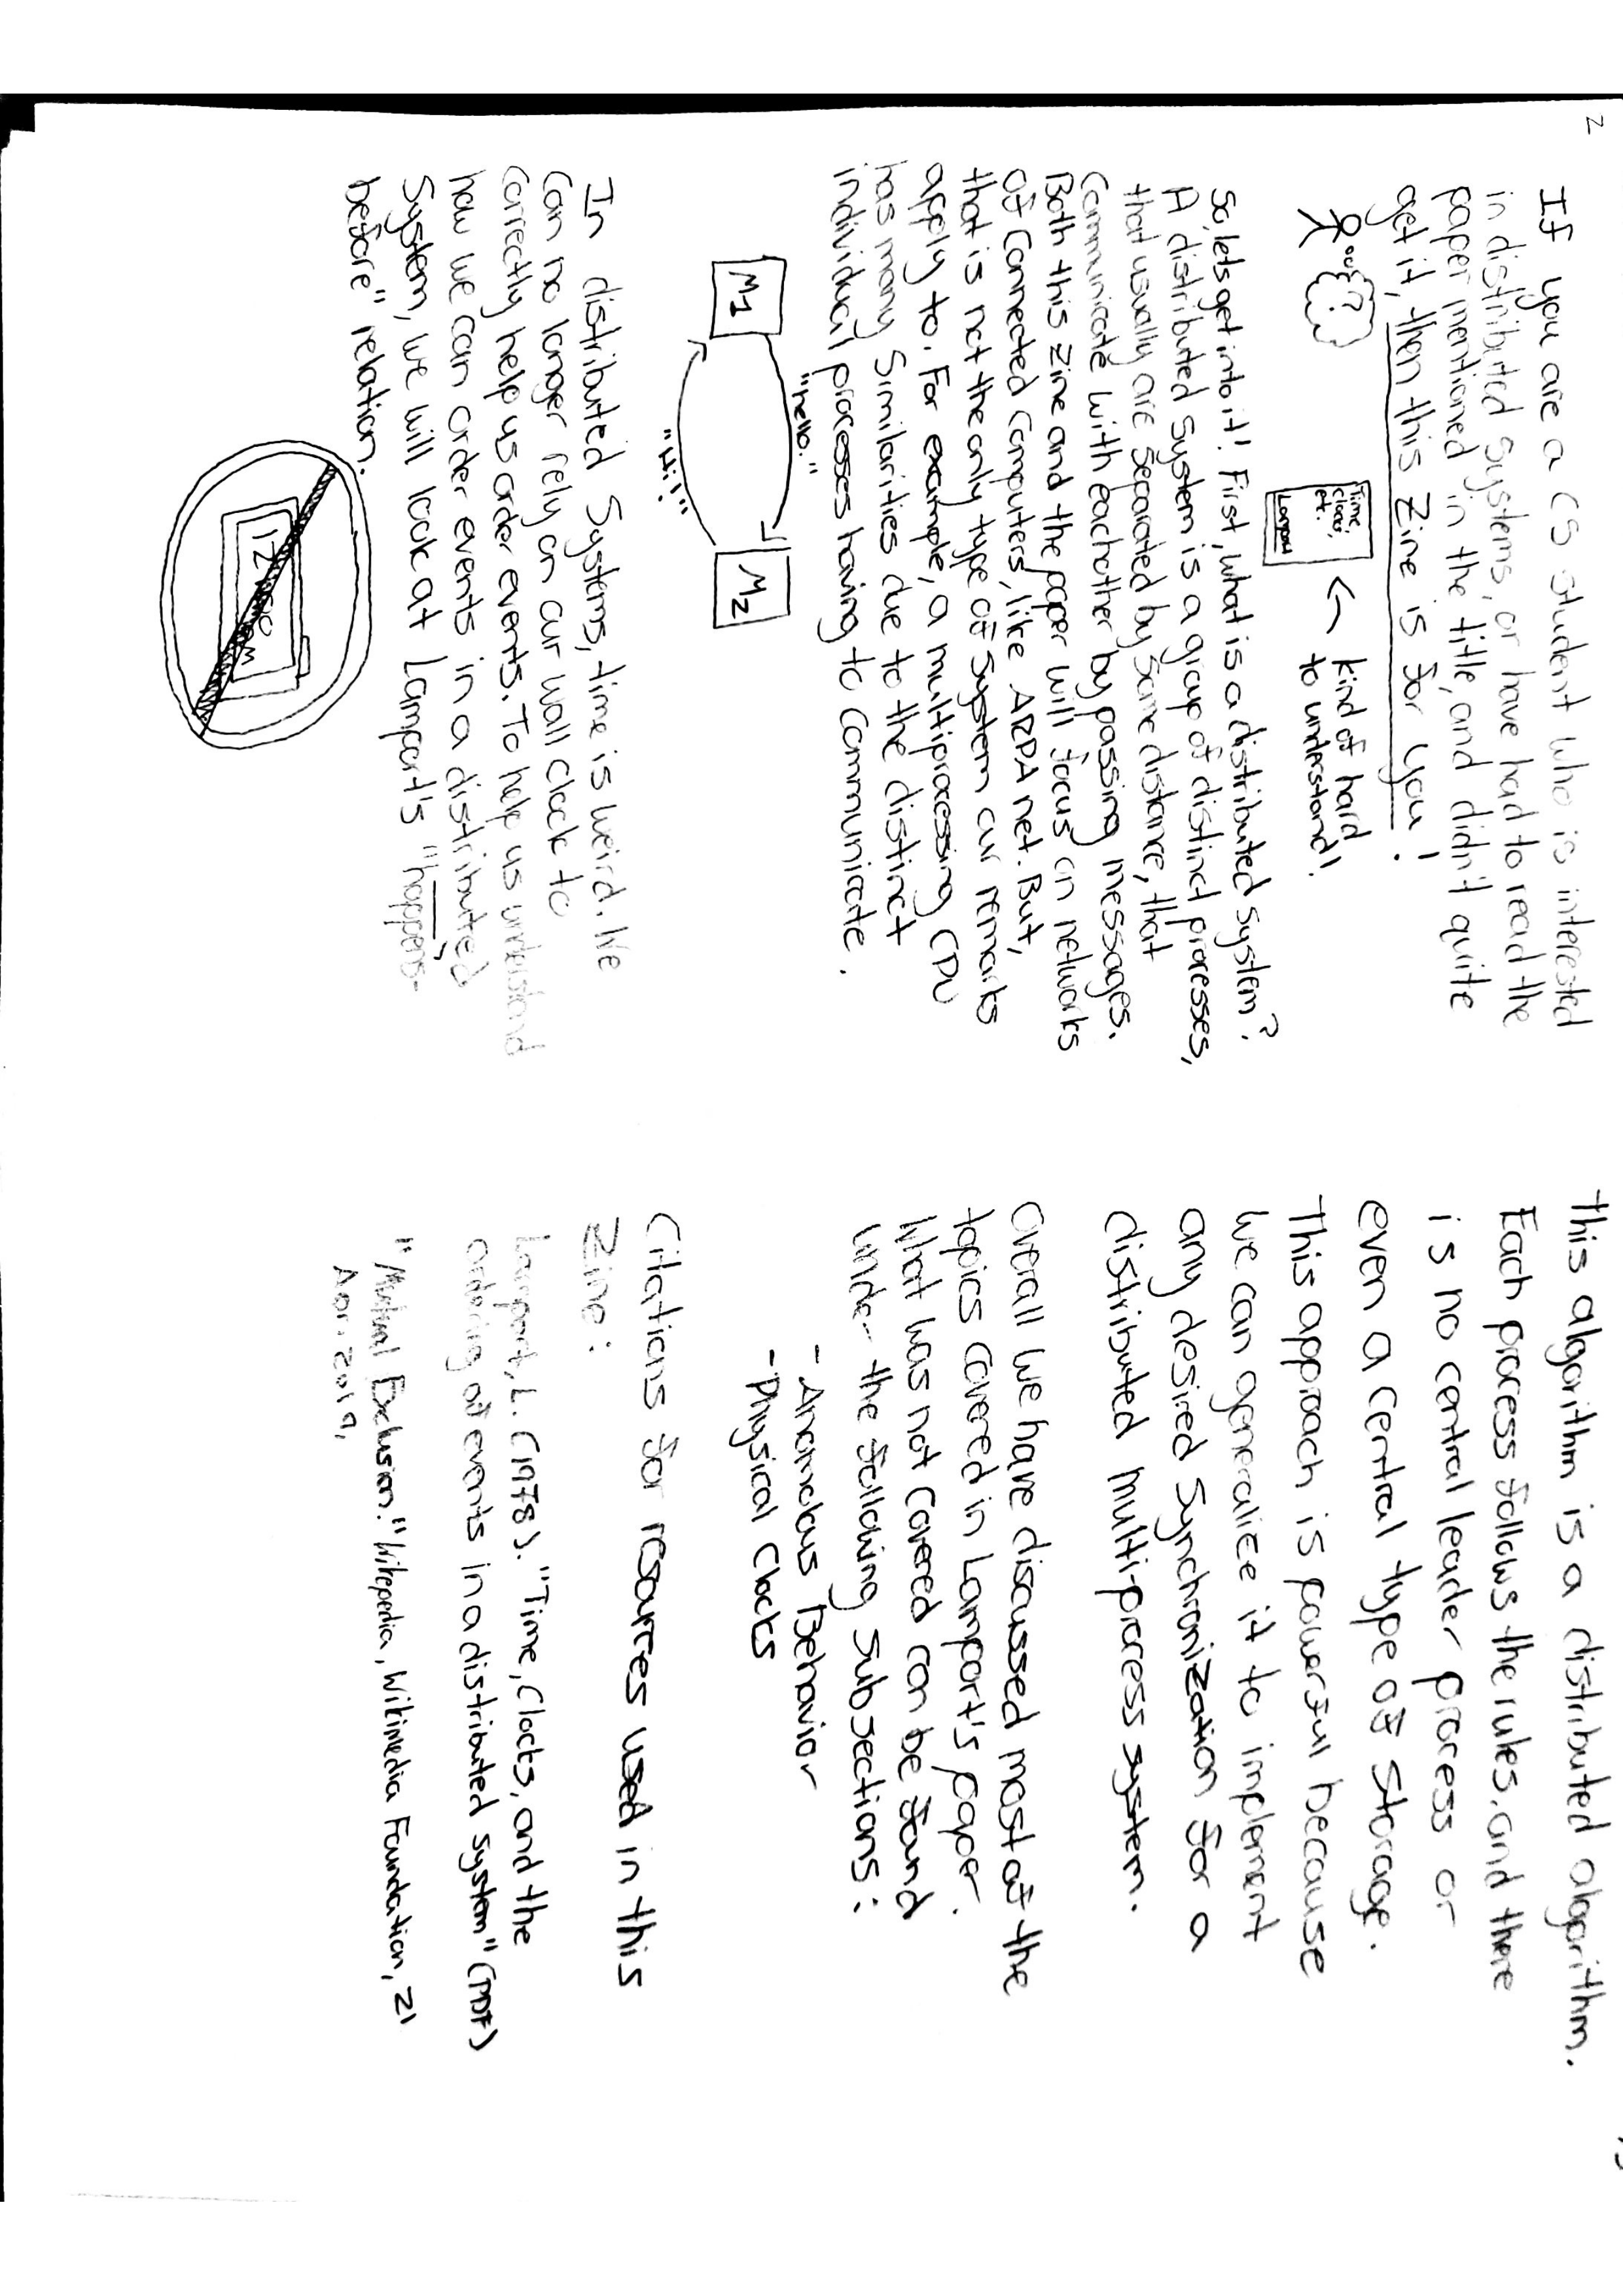 2
If you are a CS student who is interested
in distributed systems, or have had to read the
paper mentioned in the title, and didn't quite
get it, then this zine is for you!
our?
Time,
clocks,
et.
Lamport
kind of hard
to understand!
So, lets get into it! First, what is a distributed system?
A distributed system is a group of distinct processes,
that usually are separated by some distance, that
communicate with eachother by passing messages.
Both this zine and the paper will focus on networks
of connected computers, like ARPA net. But,
that is not the only type of system our remarks
apply to. For example, a multiprocessing CPU
has many similarities due to the distinct
individual processes having to communicate.
"hello."
M1
M2
"Hi!"
In distributed systems, time is weird. We
can no longer rely on our wall clock to
correctly help us order events. To help us understand
how we can order events in a distributed
system, we will look at Lamport's "happens-
before" relation.
This algorithm is a distributed algorithm.
Each process follows the rules, and there
is no central leader process or
even a central type of storage.
This approach is powerful because
we can generalize it to implement
any desired synchronization for a
distributed multi-process system.
Overall we have discussed most of the
topics covered in Lamport's paper.
What was not covered can be found
under the following subsections:
- Anomolous Behavior
- Physical Clocks
Citations for resources used in this
Zine:
Lamport, L. (1978). "Time, Clocks, and the
ordering of events in a distributed system" (PDF)
"Mutual Exclusion." Wikepedia, Wikimedia Foundation, 21
Apr. 2019,